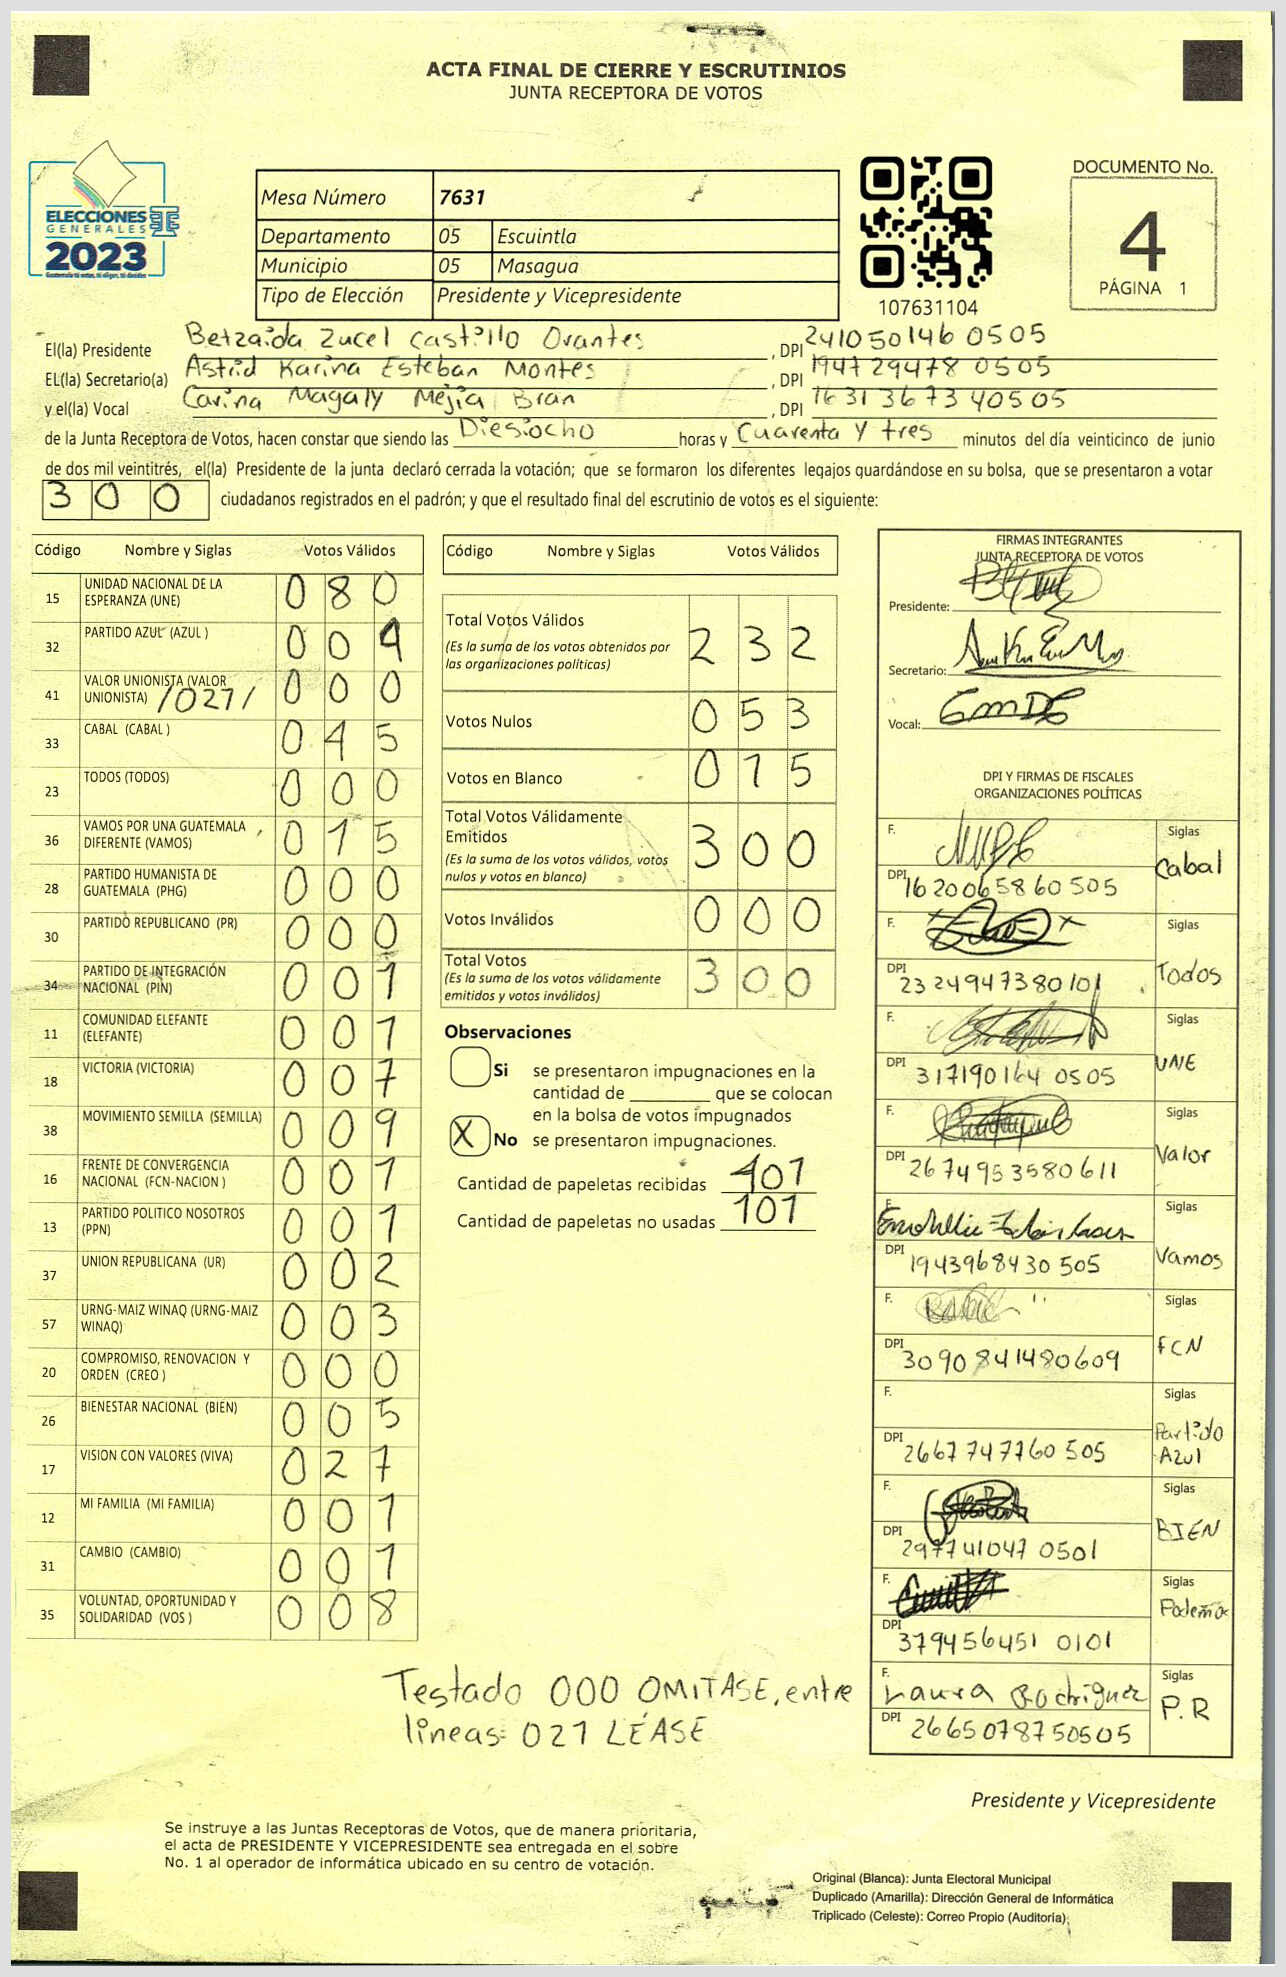 ACTA FINAL DE CIERRE Y ESCRUTINIOS
JUNTA RECEPTORA DE VOTOS
ELECCIONES
GENERALES
2023
Mesa Número 7631
Departamento 05 Escuintla
Municipio 05 Masagua
Tipo de Elección Presidente y Vicepresidente
107631104
DOCUMENTO No.
4
PÁGINA 1
El(la) Presidente Betzaida Zucel Castillo Orantes, DPI 241050146 0505
EL(la) Secretario(a) Astrid Karina Esteban Montes, DPI 194729478 0505
y el(la) Vocal Carina Magaly Mejia Bran, DPI 1631367340505
de la Junta Receptora de Votos, hacen constar que siendo las Diesiocho horas y Cuarenta y tres minutos del día veinticinco de junio
de dos mil veintitrés, el(la) Presidente de la junta declaró cerrada la votación; que se formaron los diferentes legajos guardándose en su bolsa, que se presentaron a votar
300 ciudadanos registrados en el padrón; y que el resultado final del escrutinio de votos es el siguiente:
Código Nombre y Siglas Votos Válidos
15 UNIDAD NACIONAL DE LA ESPERANZA (UNE) 080
32 PARTIDO AZUL (AZUL ) 004
41 VALOR UNIONISTA (VALOR UNIONISTA) /021/ 000
33 CABAL (CABAL ) 045
23 TODOS (TODOS) 000
36 VAMOS POR UNA GUATEMALA DIFERENTE (VAMOS) 015
28 PARTIDO HUMANISTA DE GUATEMALA (PHG) 000
30 PARTIDO REPUBLICANO (PR) 000
34 PARTIDO DE INTEGRACIÓN NACIONAL (PIN) 001
11 COMUNIDAD ELEFANTE (ELEFANTE) 001
18 VICTORIA (VICTORIA) 007
38 MOVIMIENTO SEMILLA (SEMILLA) 009
16 FRENTE DE CONVERGENCIA NACIONAL (FCN-NACION ) 001
13 PARTIDO POLITICO NOSOTROS (PPN) 001
37 UNION REPUBLICANA (UR) 002
57 URNG-MAIZ WINAQ (URNG-MAIZ WINAQ) 003
20 COMPROMISO, RENOVACION Y ORDEN (CREO ) 000
26 BIENESTAR NACIONAL (BIEN) 005
17 VISION CON VALORES (VIVA) 027
12 MI FAMILIA (MI FAMILIA) 001
31 CAMBIO (CAMBIO) 001
35 VOLUNTAD, OPORTUNIDAD Y SOLIDARIDAD (VOS ) 008
Código Nombre y Siglas Votos Válidos
Total Votos Válidos 232
(Es la suma de los votos obtenidos por
las organizaciones políticas)
Votos Nulos 053
Votos en Blanco 015
Total Votos Válidamente
Emitidos 300
(Es la suma de los votos válidos, votos
nulos y votos en blanco)
Votos Inválidos 000
Total Votos 300
(Es la suma de los votos válidamente
emitidos y votos inválidos)
Observaciones
Si se presentaron impugnaciones en la
cantidad de ________ que se colocan
en la bolsa de votos impugnados
X No se presentaron impugnaciones.
Cantidad de papeletas recibidas 401
Cantidad de papeletas no usadas 101
FIRMAS INTEGRANTES
JUNTA RECEPTORA DE VOTOS
Presidente:
Secretario:
Vocal:
DPI Y FIRMAS DE FISCALES
ORGANIZACIONES POLÍTICAS
F. Siglas Cabal
DPI 1620065860505
F. Siglas Todos
DPI 2324947380101
F. Siglas UNE
DPI 317190164 0505
F. Siglas Valor
DPI 2674953580611
F. Siglas Vamos
DPI 1943968430505
F. Siglas FCN
DPI 3090841480609
F. Siglas Partido Azul
DPI 2667747760505
F. Siglas BIEN
DPI 297741047 0501
F. Siglas
DPI 379456451 0101
F. Laura Rodriguez Siglas P.R
DPI 2665078750505
Testado 000 OMITASE, entre
lineas: 021 LÉASE
Presidente y Vicepresidente
Se instruye a las Juntas Receptoras de Votos, que de manera prioritaria,
el acta de PRESIDENTE Y VICEPRESIDENTE sea entregada en el sobre
No. 1 al operador de informática ubicado en su centro de votación.
Original (Blanca): Junta Electoral Municipal
Duplicado (Amarilla): Dirección General de Informática
Triplicado (Celeste): Correo Propio (Auditoría)